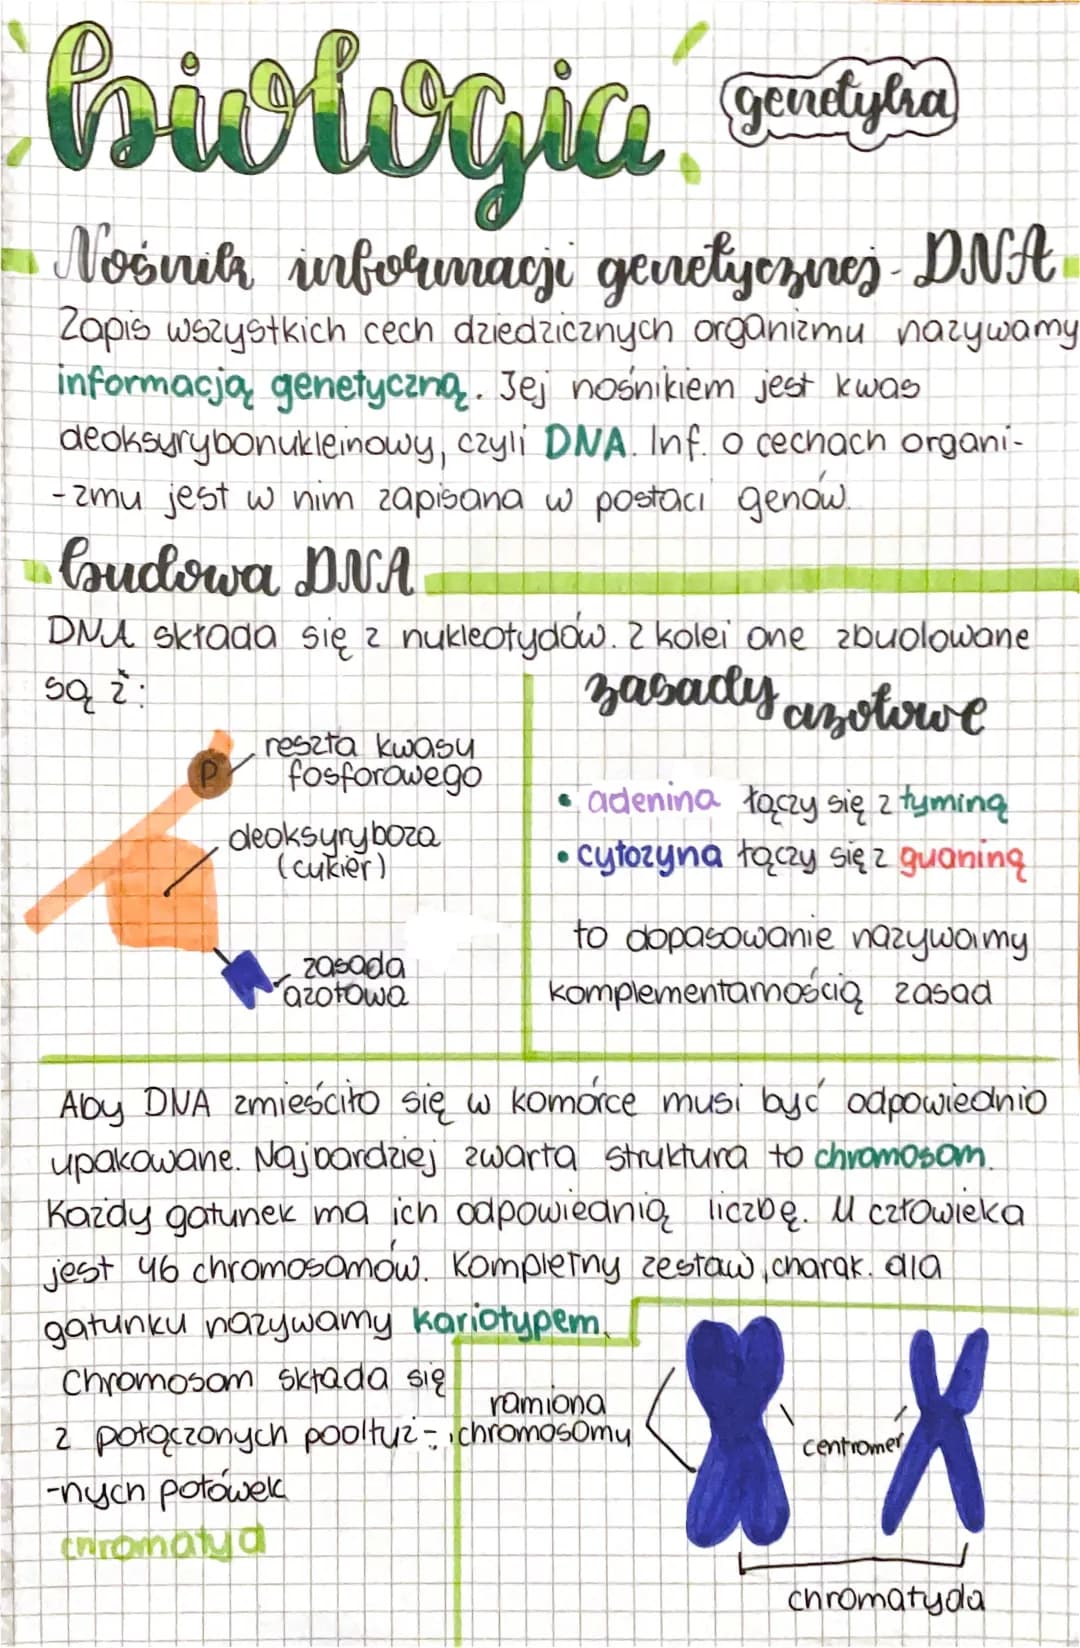 biologia
genetyka
Nośnik informacji genetycznej - DNA
Zapis wszystkich cech dziedzicznych organizmu nazywamy
informacją genetyczną. Jej nośnikiem jest kwas
deoksyrybonukleinowy, czyli DNA. Inf. o cechach organi-
-zmu jest w nim zapisana w postaci genów.
budowa DNA
DNA składa się z nukleotydów. Z kolei one zbudowane
są z:
P
reszta kwasu
fosforowego
deoksyryboza
(cukier)
zasada
azotowa
zasady azotowe
• adenina łączy się z tyminą
• cytozyna łączy się z guaniną
to dopasowanie nazywamy
komplementarnością zasad
Aby DNA zmieściło się w komórce musi być odpowiednio
upakowane. Najbardziej zwarta struktura to chromosom.
Każdy gatunek ma ich odpowiednią liczbę. U człowieka
jest 46 chromosomów. Kompletny zestaw, charak. dla
gatunku nazywamy kariotypem.
Chromosom składa się
z połączonych podłuż-
-nych połówek
chromatyd
ramiona
chromosomu
centromer
chromatyda